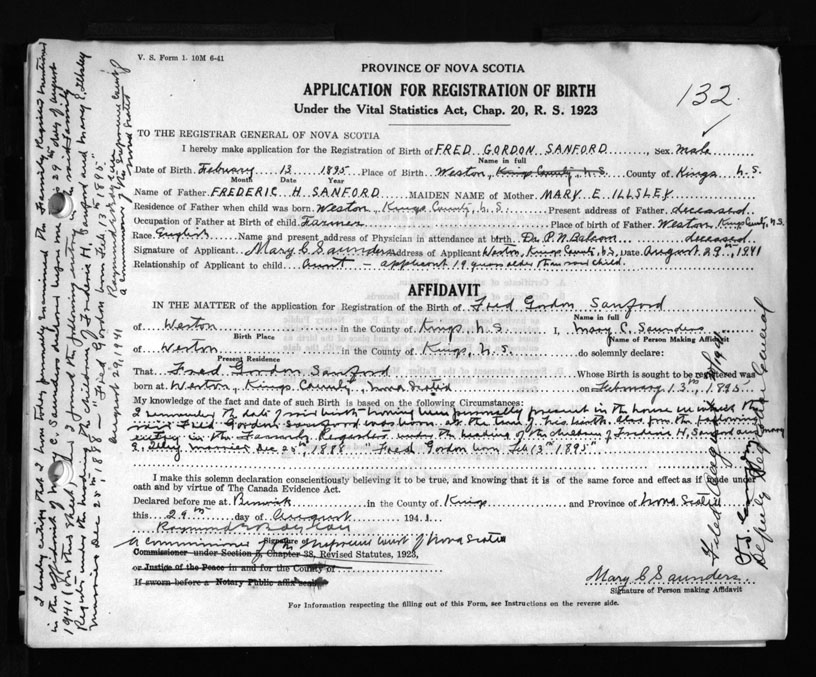 V. S. Form 1. 10M 6-41
PROVINCE OF NOVA SCOTIA
APPLICATION FOR REGISTRATION OF BIRTH
Under the Vital Statistics Act, Chap. 20, R. S. 1923
132
TO THE REGISTRAR GENERAL OF NOVA SCOTIA
I hereby make application for the Registration of Birth of FRED GORDON SANFORD, Sex male
Name in full
Date of Birth February 13 1895 Place of Birth Weston, Kings County, N.S. County of Kings N.S.
Month Date Year
Name of Father FREDERIC H. SANFORD MAIDEN NAME of Mother MARY E. ILLSLEY
Residence of Father when child was born Weston, Kings County, N.S. Present address of Father deceased
Occupation of Father at Birth of child Farmer Place of birth of Father Weston, Kings County, N.S.
Race English Name and present address of Physician in attendance at birth Dr. P. N. Balcom deceased
Signature of Applicant Mary C Saunders Address of Applicant Weston, Kings County, N.S. Date August 29th, 1941
Relationship of Applicant to child Aunt - applicant 19 years older than said child.
AFFIDAVIT
IN THE MATTER of the application for Registration of the Birth of Fred Gordon Sanford
Name in full
of Weston in the County of Kings, N.S. I, Mary C. Saunders
Birth Place (Name of Person Making Affidavit
of Weston in the County of Kings, N.S. do solemnly declare:
Present Residence
That Fred Gordon Sanford Whose Birth is sought to be registered was
born at Weston, Kings County, Nova Scotia on February 13th, 1895
My knowledge of the fact and date of such Birth is based on the following Circumstances:
I remember the date of said birth having been personally present in the house in which the
said Fred Gordon Sanford was born at the time of his birth. Also from the following
entry in the Family Register under the heading of the children of Frederic H. Sanford and Mary
E. Illsley married Dec 25th, 1888 "Fred Gordon born Feb 13th 1895"
I make this solemn declaration conscientiously believing it to be true, and knowing that it is of the same force and effect as if made under
oath and by virtue of The Canada Evidence Act.
Declared before me at Berwick in the County of Kings and Province of Nova Scotia
this 29th day of August 1941
Signature of
A Commissioner of the Supreme Court of Nova Scotia
Commissioner under Section 5, Chapter 38, Revised Statutes, 1923,
or Justice of the Peace in and for the County of
If sworn before a Notary Public affix seal
Mary C Saunders
Signature of Person Making Affidavit
For Information respecting the filling out of this Form, see Instructions on the reverse side.
I hereby certify that I have today personally examined the Family Register mentioned
in the affidavit of Mary C. Saunders declared before me this 29th day of August
1941 (on this sheet) and I found the following entry in the said Family
Register under the heading the children of Frederic H. Sanford and Mary E. Illsley
married Dec 25th, 1888 - "Fred Gordon born Feb 13th 1895."
August 29, 1941
A Commissioner of the Supreme Court of
Nova Scotia
Filed 1941
Deputy Registrar General